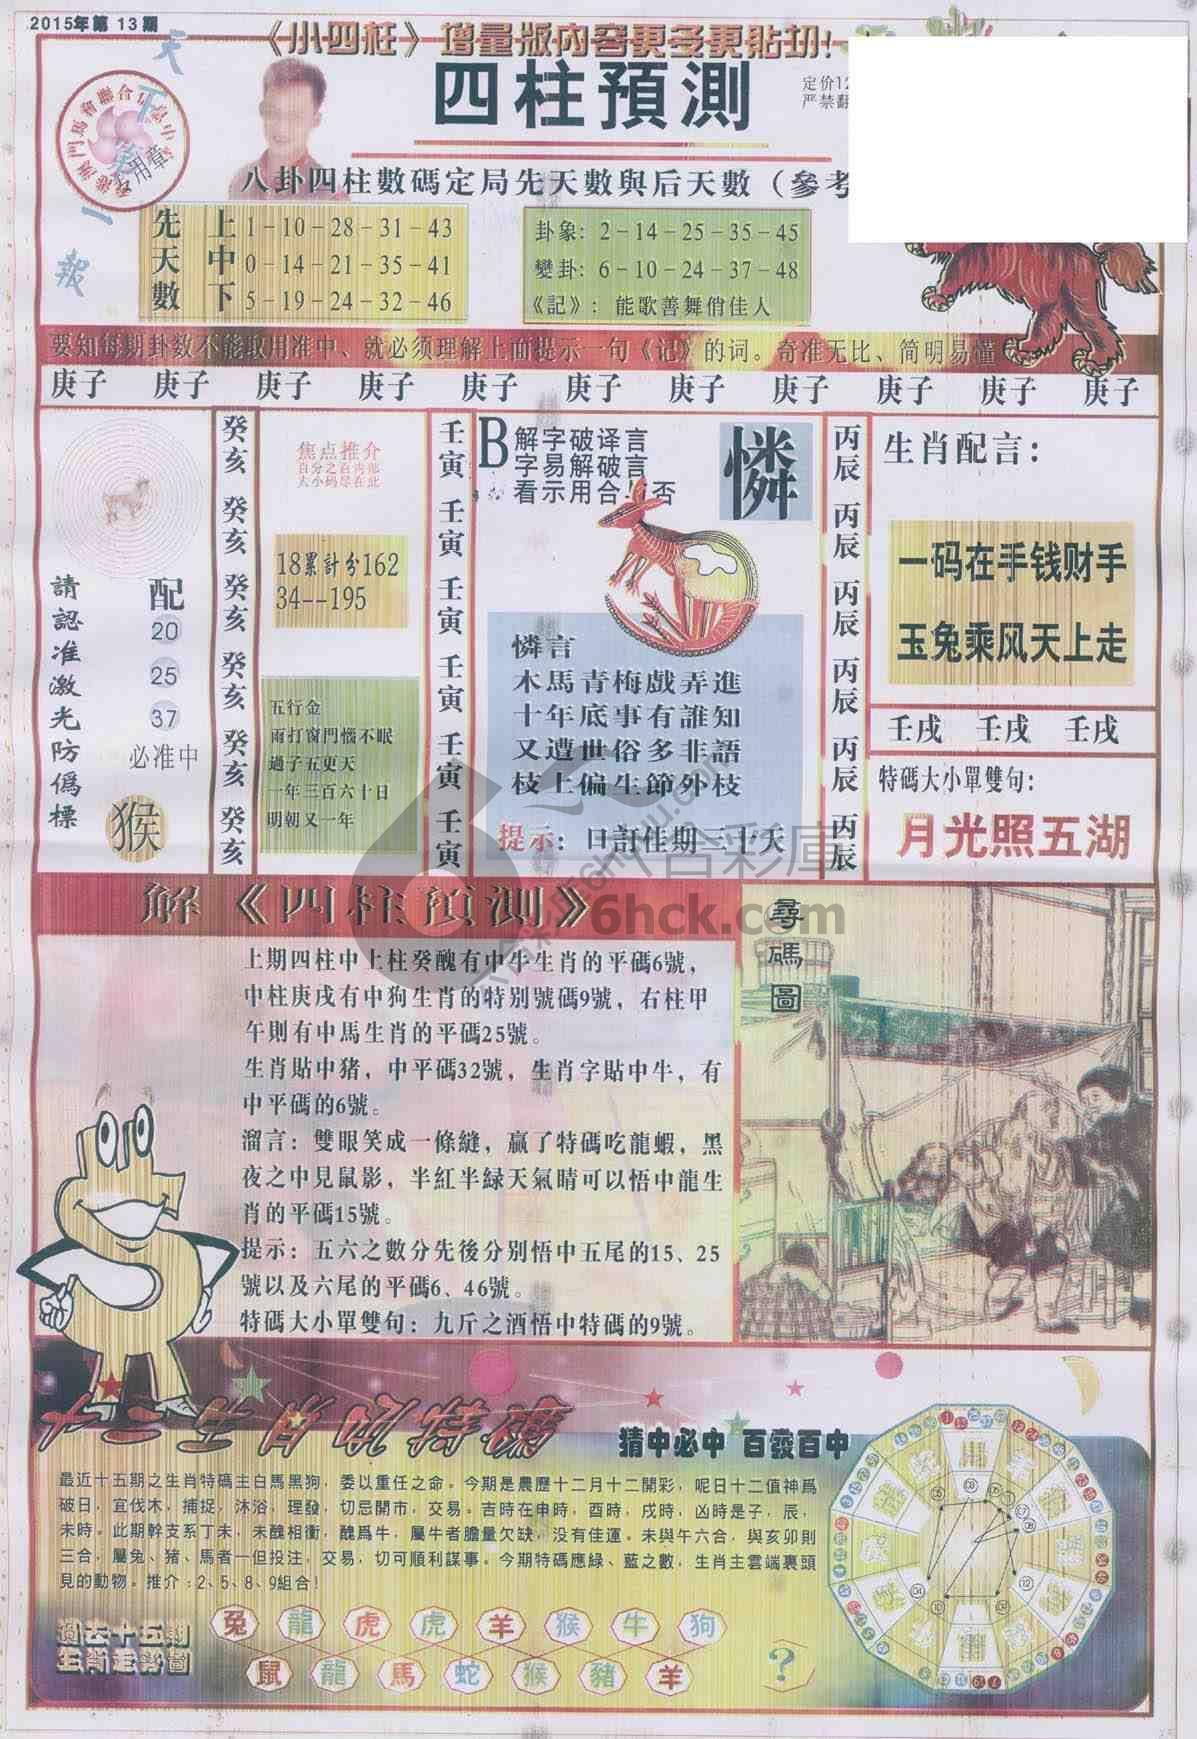 2015年第13期
《小四柱》增量版內容更多更貼切!
四柱預測
定价12
严禁翻
天下第一報
八卦四柱數碼定局先天數與后天數（參考
先天數
上 1－10－28－31－43
中 0－14－21－35－41
下 5－19－24－32－46
卦象: 2－14－25－35－45
變卦: 6－10－24－37－48
《記》: 能歌善舞俏佳人
要知每期卦数不能取用准中、就必须理解上面提示一句《记》的词。奇准无比、简明易懂
庚子 庚子 庚子 庚子 庚子 庚子 庚子 庚子 庚子 庚子 庚子
請認准激光防僞標
配
20
25
37
必准中
猴
癸亥 癸亥 癸亥 癸亥 癸亥 癸亥
焦点推介
百分之百内部
大小码尽在此
18累計分162
34--195
五行金
雨打窗門惱不眠
過子五更天
一年三百六十日
明朝又一年
壬寅 壬寅 壬寅 壬寅 壬寅 壬寅
B
解字破译言
字易解破言
看示用合与否
憐
憐言
木馬青梅戲弄進
十年底事有誰知
又遭世俗多非語
枝上偏生節外枝
提示: 口訂佳期三七天
丙辰 丙辰 丙辰 丙辰 丙辰 丙辰
生肖配言:
一码在手钱财手
玉兔乘风天上走
壬戌 壬戌 壬戌
特碼大小單雙句:
月光照五湖
六合彩庫
6hck.com
解《四柱預測》
上期四柱中上柱癸醜有中牛生肖的平碼6號，
中柱庚戌有中狗生肖的特别號碼9號，右柱甲
午則有中馬生肖的平碼25號。
生肖貼中猪，中平碼32號，生肖字貼中牛，有
中平碼的6號。
溜言: 雙眼笑成一條縫，贏了特碼吃龍蝦，黑
夜之中見鼠影，半紅半緑天氣晴可以悟中龍生
肖的平碼15號。
提示: 五六之數分先後分别悟中五尾的15、25
號以及六尾的平碼6、46號。
特碼大小單雙句: 九斤之酒悟中特碼的9號。
尋碼圖
猜中必中 百發百中
最近十五期之生肖特碼主白馬黑狗，委以重任之命。今期是農歷十二月十二開彩，呢日十二值神爲
破日，宜伐木，捕捉，沐浴，理發，切忌開市，交易。吉時在申時，酉時，戌時，凶時是子，辰，
未時。此期幹支系丁未，未醜相衝，醜爲牛，屬牛者膽量欠缺，没有佳運。未與午六合，與亥卯則
三合，屬兔、猪、馬者一但投注，交易，切可順利謀事。今期特碼應緑、藍之數，生肖主雲端裏頭
見的動物。推介:2、5、8、9組合!
過去十五期
生肖走勢圖
兔 龍 虎 虎 羊 猴 牛 狗
鼠 龍 馬 蛇 猴 豬 羊 ?